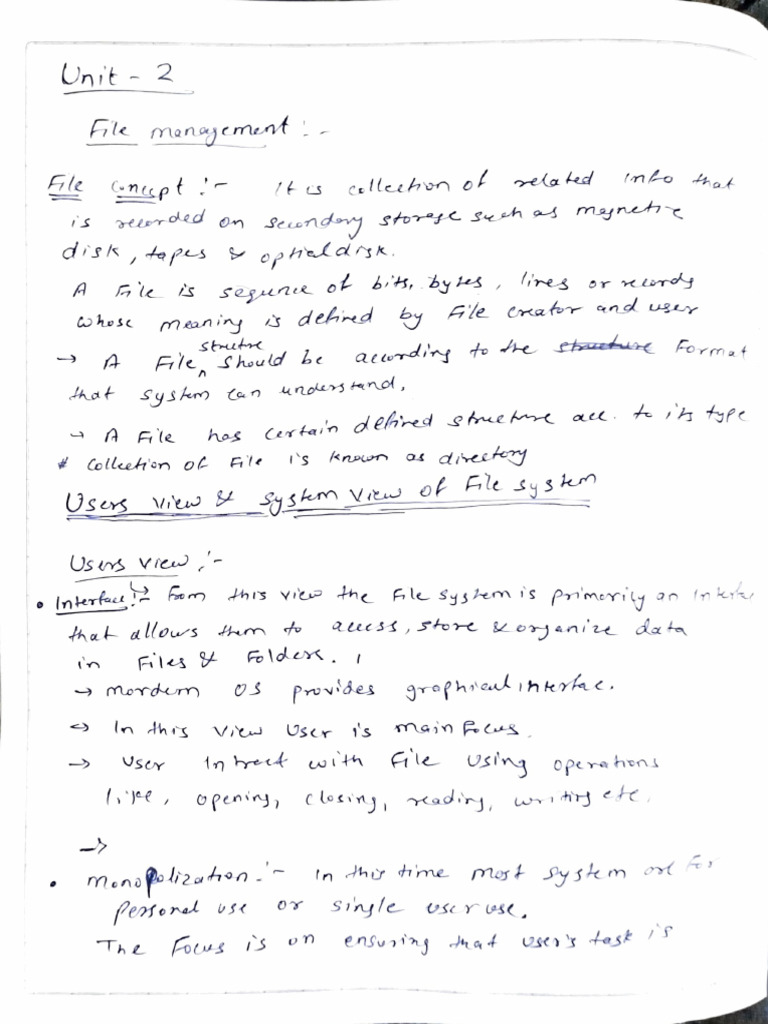 Unit - 2
File management : -
File Concept :- It is collection of related info that
is recorded on secondary storage such as magnetic
disk, tapes & optical disk.
A File is sequence of bits, bytes, lines or records
whose meaning is defined by File creator and user
→ A File structre should be according to the structure Format
that system can understand,
→ A File has certain defined structure acc. to its type
* Collection of File is known as directory
Users view & system view of File system
Users view :-
• Interface :- From this view the File system is primarily an
that allows them to access, store & organize data
in Files & Folders.
→ mordern OS provides graphical interfac.
→ In this view user is main focus.
→ user intrect with File using operations
like, opening, closing, reading, writing etc.
→
• Monopolization :- in this time most system are for
personal use or single user use.
The Focus is on ensuring that user's task is